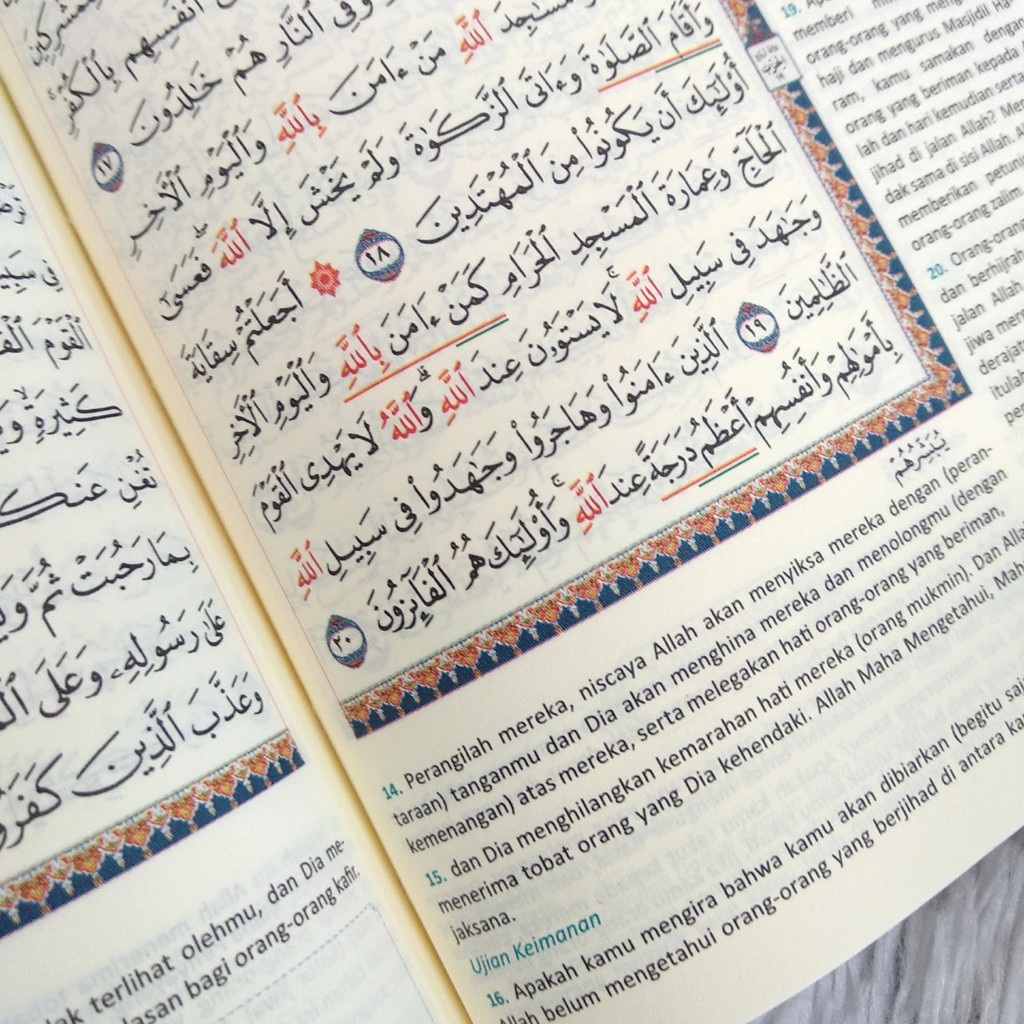 أَنفُسِهِم بِٱلْكُفْرِ
وَفِى ٱلنَّارِ هُمْ خَٰلِدُونَ ١٧
مَسَٰجِدَ ٱللَّهِ مَنْ ءَامَنَ بِٱللَّهِ وَٱلْيَوْمِ ٱلْأَخِرِ
وَأَقَامَ ٱلصَّلَوٰةَ وَءَاتَى ٱلزَّكَوٰةَ وَلَمْ يَخْشَ إِلَّا ٱللَّهَ ۖ فَعَسَىٰٓ
أُو۟لَٰٓئِكَ أَن يَكُونُوا۟ مِنَ ٱلْمُهْتَدِينَ ١٨ ۞ أَجَعَلْتُمْ سِقَايَةَ
ٱلْحَآجِّ وَعِمَارَةَ ٱلْمَسْجِدِ ٱلْحَرَامِ كَمَنْ ءَامَنَ بِٱللَّهِ وَٱلْيَوْمِ ٱلْأَخِرِ
وَجَٰهَدَ فِى سَبِيلِ ٱللَّهِ ۚ لَا يَسْتَوُۥنَ عِندَ ٱللَّهِ ۗ وَٱللَّهُ لَا يَهْدِى ٱلْقَوْمَ
ٱلظَّٰلِمِينَ ١٩ ٱلَّذِينَ ءَامَنُوا۟ وَهَاجَرُوا۟ وَجَٰهَدُوا۟ فِى سَبِيلِ ٱللَّهِ
بِأَمْوَٰلِهِمْ وَأَنفُسِهِمْ أَعْظَمُ دَرَجَةً عِندَ ٱللَّهِ ۚ وَأُو۟لَٰٓئِكَ هُمُ ٱلْفَآئِزُونَ ٢٠
يُبَشِّرُهُمْ
14. Perangilah mereka, niscaya Allah akan menyiksa mereka dengan (peran-
taraan) tanganmu dan Dia akan menghina mereka dan menolongmu (dengan
kemenangan) atas mereka, serta melegakan hati orang-orang yang beriman,
15. dan Dia menghilangkan kemarahan hati mereka (orang mukmin). Dan Alla
menerima tobat orang yang Dia kehendaki. Allah Maha Mengetahui, Mah
jaksana.
Ujian Keimanan
16. Apakah kamu mengira bahwa kamu akan dibiarkan (begitu saj
Allah belum mengetahui orang-orang yang berjihad di antara ka
19.
memberi
orang-orang yang meng
haji dan mengurus Masjidil Ha
ram, kamu samakan dengan
orang yang beriman kepada
lah dan hari kemudian serta
jihad di jalan Allah? Me
dak sama di sisi Allah.
memberikan petunj
orang-orang zalim
20. Orang-oran
dan berhijrah
jalan Allah
jiwa mere
derajat
itulah
فِى سَبِي
ٱلْقَوْمَ
كَثِيرَةٍ ۙ
تُغْنِ عَنكُ
بِمَا رَحُبَتْ ثُمَّ
عَلَىٰ رَسُولِهِۦ وَعَلَى
وَعَذَّبَ ٱلَّذِينَ كَفَرُ
ak terlihat olehmu, dan Dia me-
lasan bagi orang-orang kafir.